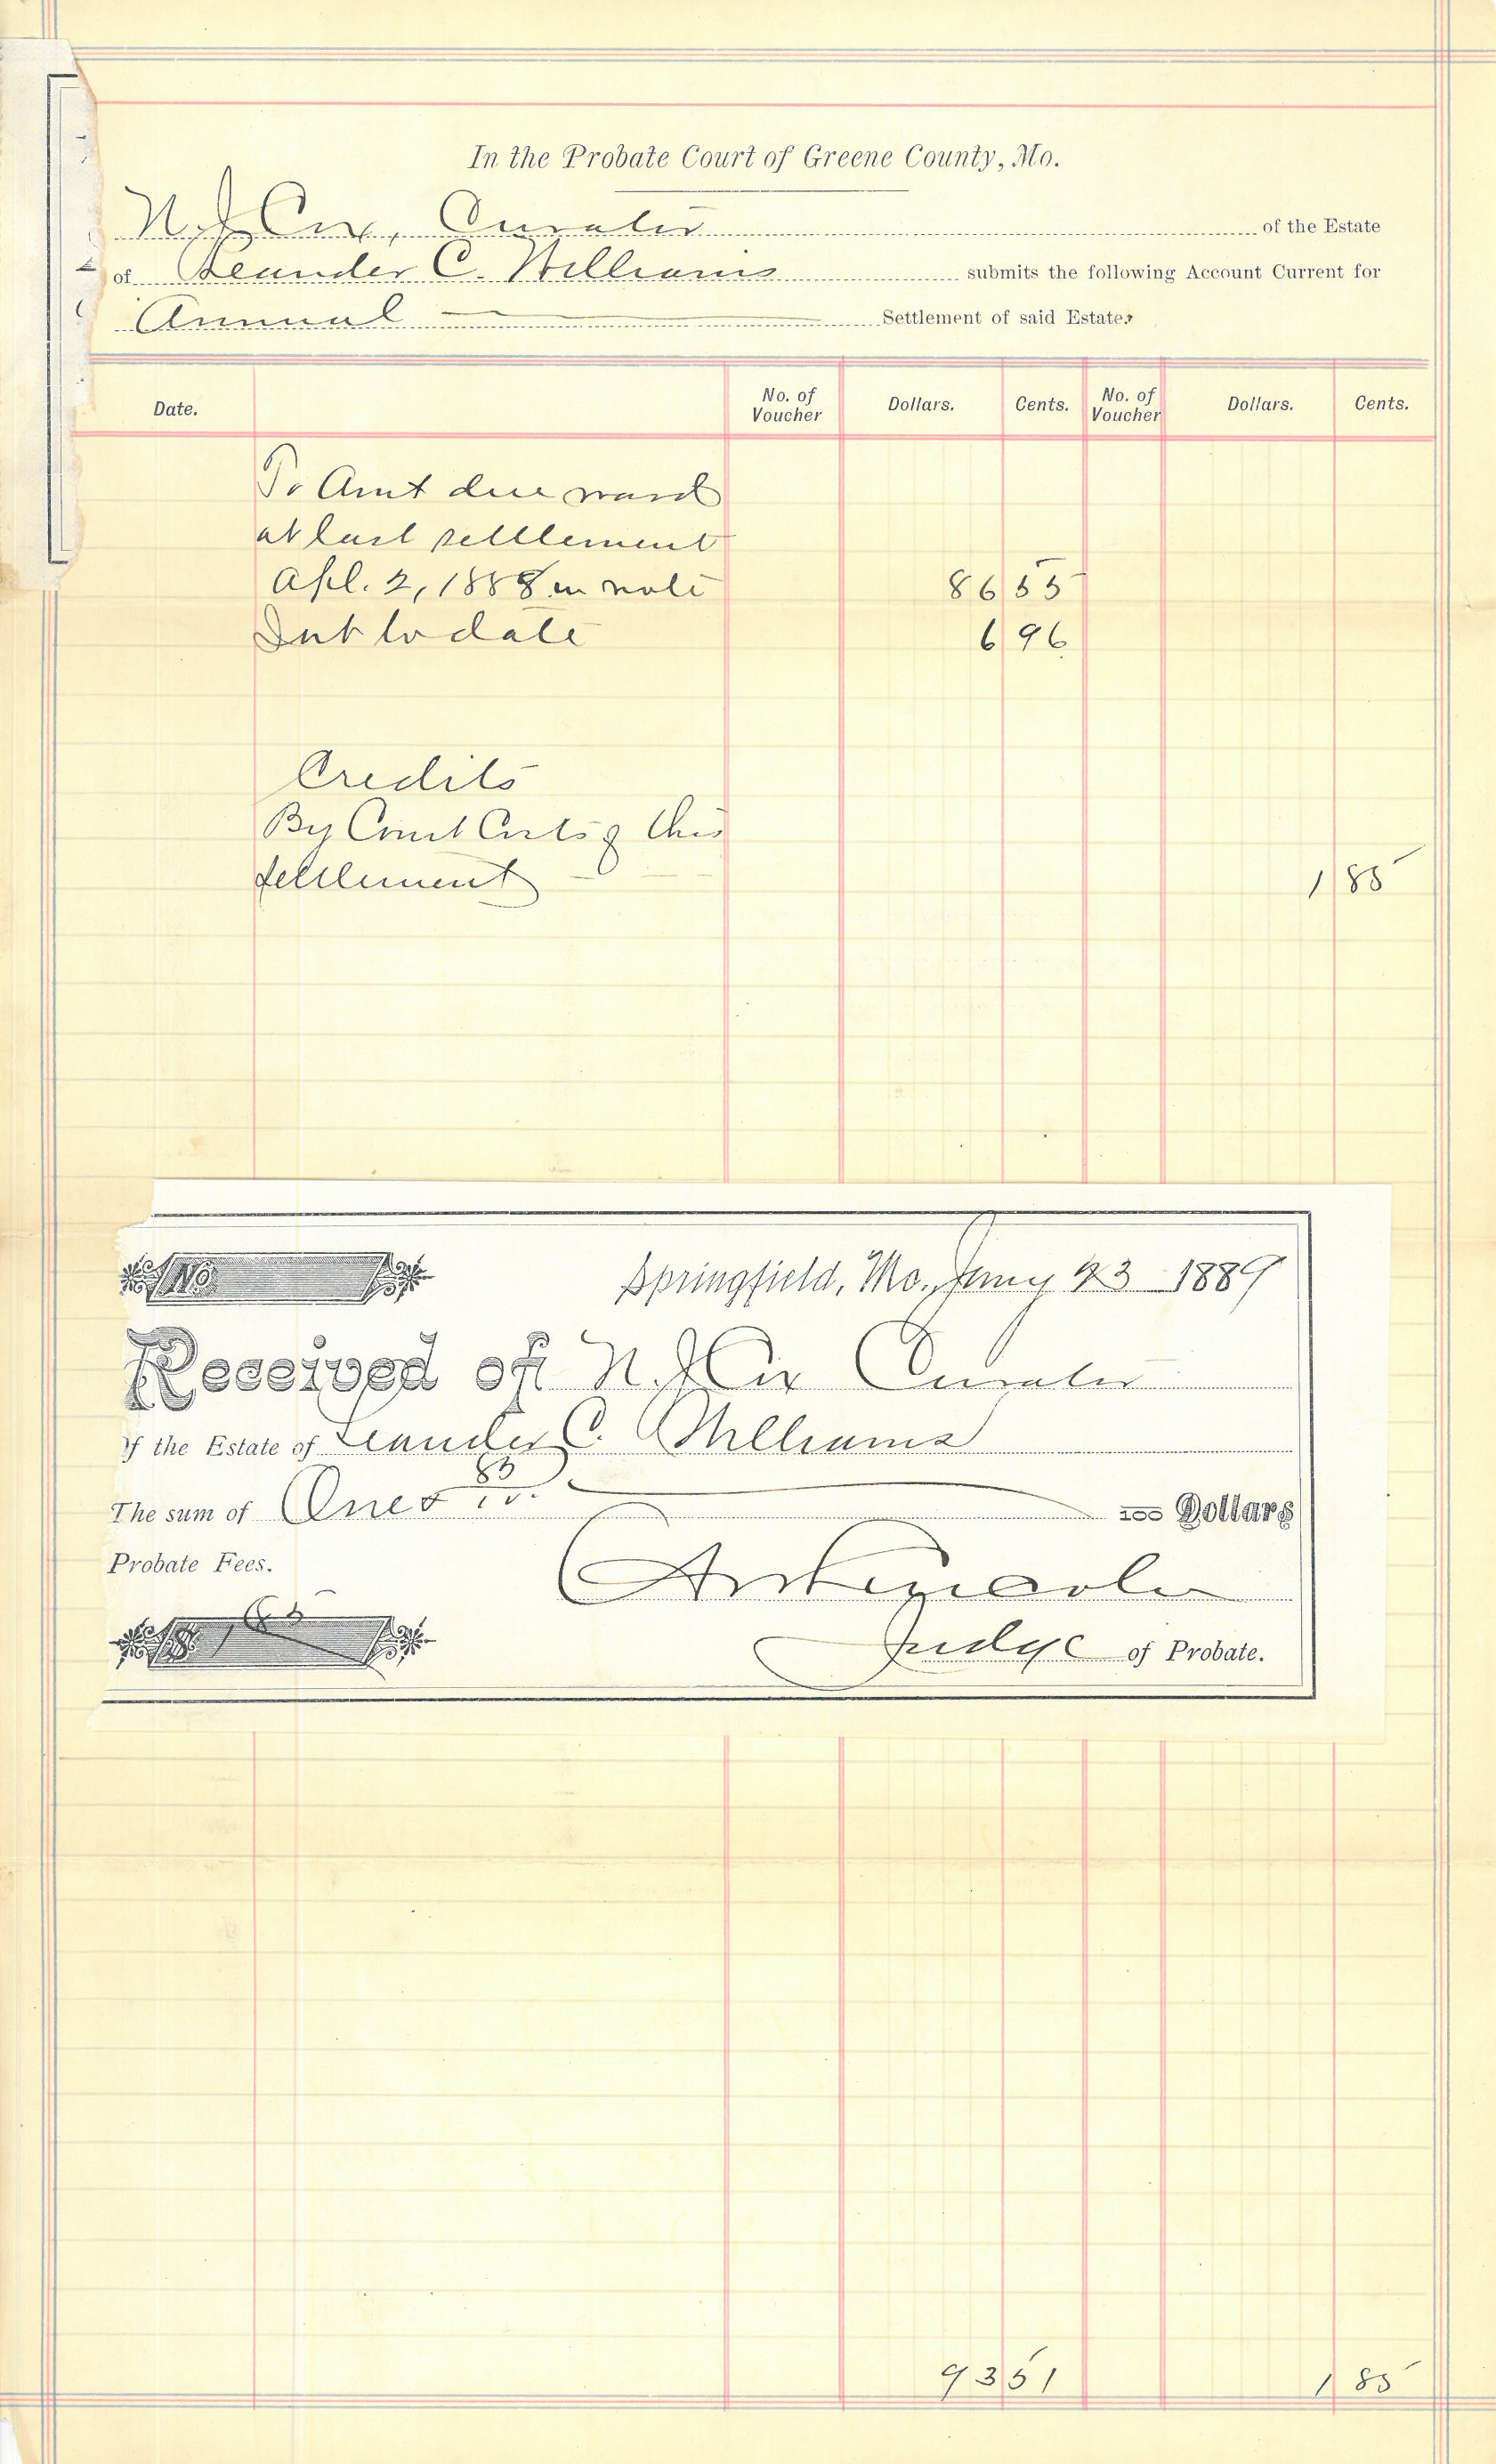 In the Probate Court of Greene County, Mo.
N. J. Cox, Curator of the Estate
of Leander C. Williams submits the following Account Current for
Annual Settlement of said Estate.
Date. No. of Voucher Dollars. Cents. No. of Voucher Dollars. Cents.
To Amt due ward
at last settlement
Apl. 2, 1888 in note 86 55
Int to date 6 96
Credits
By Court Costs of this
settlement 1 85
No. Springfield, Mo., Jany 23 1889
Received of N. J. Cox Curator
of the Estate of Leander C. Williams
The sum of One & 85/100 Dollars
Probate Fees.
$ 1 85 Judge of Probate.
93 51 1 85